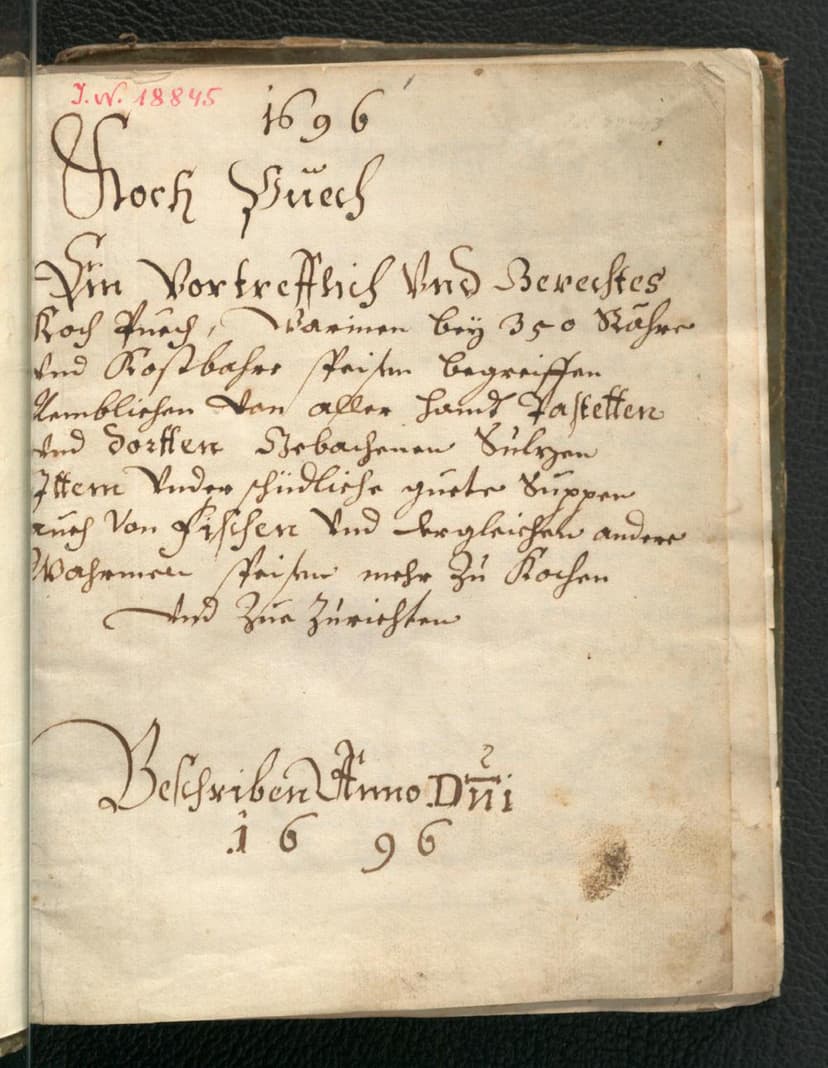 J.N. 18845
1696
Koch Puech
Ein Vortrefflich Vnd Gerechtes
Koch Puech, Warinen bey 350 Rahre
vnd Kostbahre speisen begreiffen
Nemblichen von aller handt Pastetten
vnd dortten Gebachenen Sulzen
Ittem Vnder schidliche guete Suppen
auch Von Fischen Vnd dergleichen andere
Wahrmen speisen mehr Zu Kochen
vnd Zue Zurichten
Beschriben Anno Dni̅
1696